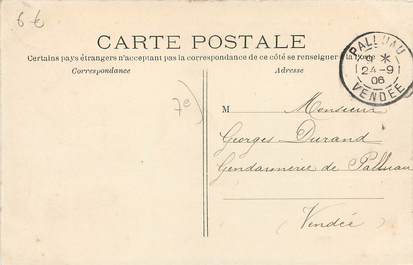 6 €
CARTE POSTALE
Certains pays étrangers n'acceptant pas la correspondance de ce côté se renseigner à la Poste
Correspondance
Adresse
PALLUAU
9 *
24-9
06
VENDÉE
7e)
M Monsieur
Georges Durand
Gendarmerie de Palluau
(Vendée)